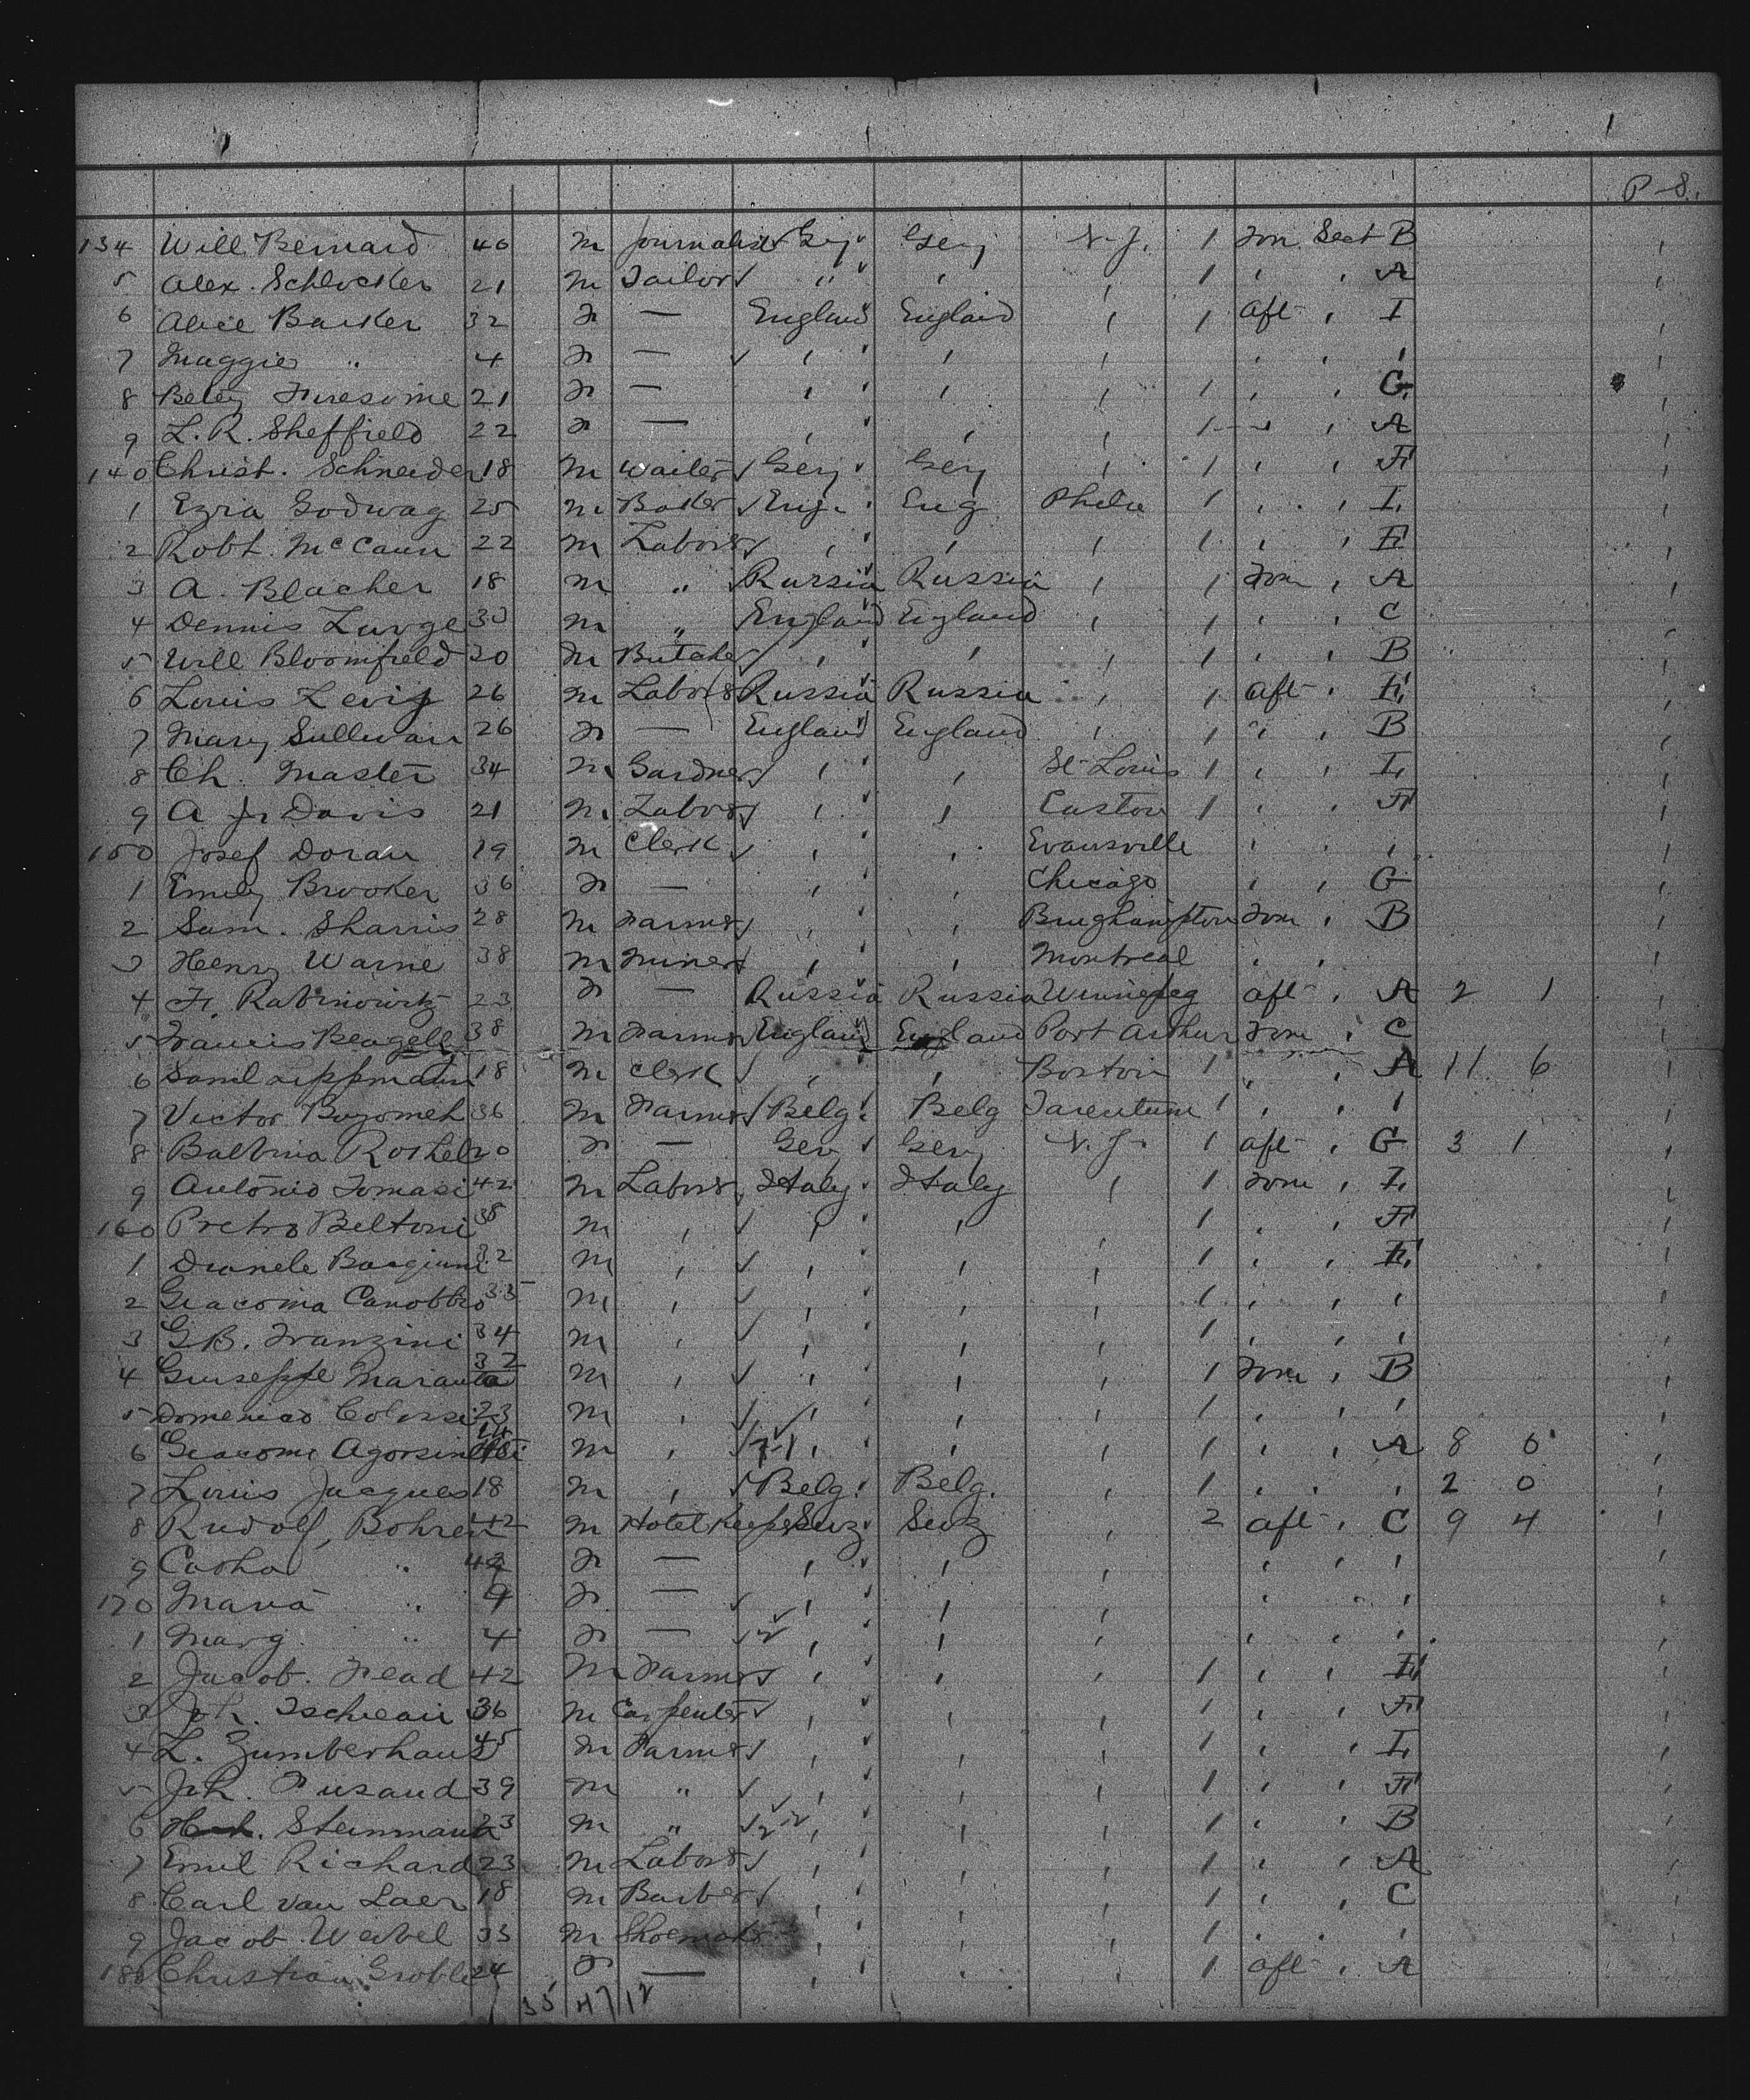 P-8.
134 Will Bernard 40 m Journalist Gey Gey N.J. 1 For. Sect B
5 Alex. Schlocker 21 m Tailor " ' ' 1 ' ' A
6 Alice Barker 32 F — England England ' 1 aft ' I
7 Maggie " 4 F — ' ' ' ' ' '
8 21 F — ' ' ' 1 ' ' G
9 L. R. Sheffield 22 F — ' ' ' 1 ' ' A
140 Christ. Schneider 18 m Waiter Gey Gey ' 1 ' ' F
1 Ezria Godwag 25 m Baker Eng. Eug Phila 1 ' ' I
2 Robt. McCann 22 m Labors ' ' ' 1 ' ' E
3 A. Blacher 18 m " Russia Russia ' 1 For ' A
4 Dennis Lurge 30 m " England England ' 1 ' ' C
5 Will Bloomfield 20 m Butcher ' ' ' 1 ' ' B
6 Louis Levis 26 m Labors Russia Russia ' 1 aft ' E
7 Mary Sullivan 26 F — England England ' 1 ' ' B
8 Ch. Master 34 m Gardner ' ' St Louis 1 ' ' I
9 A Jr Davis 21 m Labors ' ' Easton 1 ' ' F
150 Josef Doran 19 m Clerk ' ' Evansville ' ' '
1 Emily Brooker 36 F — ' ' Chicago ' ' G
2 Sam. Sharris 28 m Farmer ' ' Binghampton For ' B
3 Henry Warne 38 m Miner ' ' Montreal ' '
4 F. Rabinowitz 23 F — Russia Russia Winnipeg aft ' A 2 1
5 Francis Beagell 38 m Farmer England England Port Arthur For ' C
6 Saml Lippmann 18 m Clerk ' ' Boston 1 ' ' A 11 6
7 Victor 36 m Farmer Belg. Belg Tarentum 1 ' ' '
8 Balbina Rothel 20 F — Gey Gey N.J. 1 aft ' G 3 1
9 Antonio Tomasi 42 m Labors Italy Italy ' 1 For ' I
160 Pretro Beltoni 38 m ' ' ' ' 1 ' ' F
1 32 m ' ' ' ' 1 ' ' E
2 Giacoma Canobbio 35 m ' ' ' ' 1 ' ' '
3 G.B. Franzini 34 m ' ' ' ' 1 ' ' '
4 Guiseppe Maranta 32 m ' ' ' ' 1 For ' B
5 Domenico Colossi 23 m ' ' ' ' 1 ' ' '
6 Giacomo m ' ' ' ' 1 ' ' A 8 0
7 Louis Jacques 18 m ' Belg. Belg. ' 1 ' ' ' 2 0
8 Rudolf, Bohren 42 m Hotel Keeper Swz Swz ' 2 aft ' C 9 4
9 " 42 F — ' ' ' ' ' '
170 Maria " 9 F — ' ' ' ' ' '
1 Marg. " 4 F — ' ' ' ' ' '
2 Jacob. Fead 42 m Farmer ' ' ' 1 ' ' E
3 Joh. 36 m Carpenter ' ' ' 1 ' ' F
4 L. Zumberhaus 45 m Farmer ' ' ' 1 ' ' I
5 Joh. Rusand 39 m " ' ' ' 1 ' ' F
6 Steinmann 23 m " ' ' ' 1 ' ' B
7 Emil Richard 23 m Labors ' ' ' 1 ' ' A
8 Carl van Laer 18 m Barber ' ' ' 1 ' ' C
9 Jacob Weibel 33 m Shoemaker ' ' ' 1 ' ' '
180 Christian Grobli 24 F — ' ' ' 1 aft ' A
35 47 12